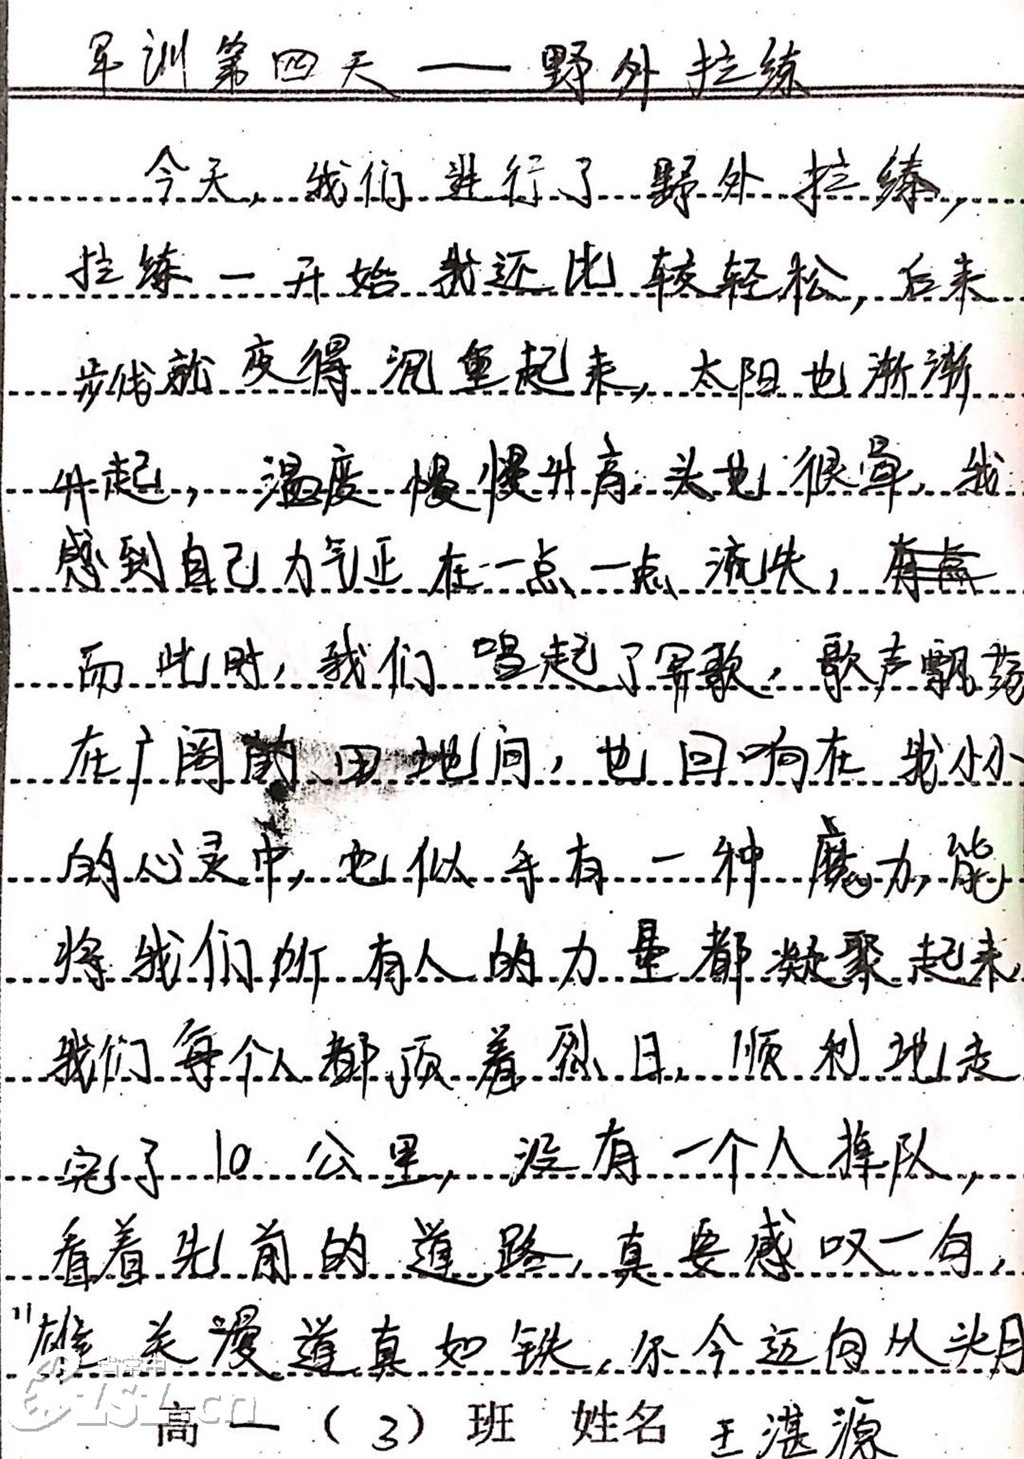 军训第四天——野外拉练
今天，我们进行了野外拉练，
拉练一开始我还比较轻松，后来
步伐就变得沉重起来，太阳也渐渐
升起，温度慢慢升高，头也很晕，我
感到自己力气正在一点一点流失，
而此时，我们唱起了军歌，歌声飘荡
在广阔的田地间，也回响在我小小
的心灵中，它似乎有一种魔力，能
将我们所有人的力量都凝聚起来，
我们每个人都顶着烈日，顺利地走
完了10公里，没有一个人掉队，
看着先前的道路，真要感叹一句，
"雄关漫道真如铁，尔今迈向从头月
高一（3）班 姓名 王湛源
ZSZ.cn